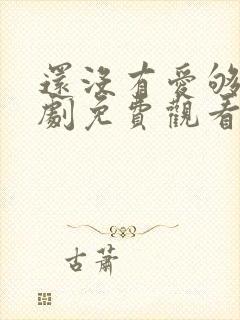 還沒有愛够
劇免費觀看
古蕭